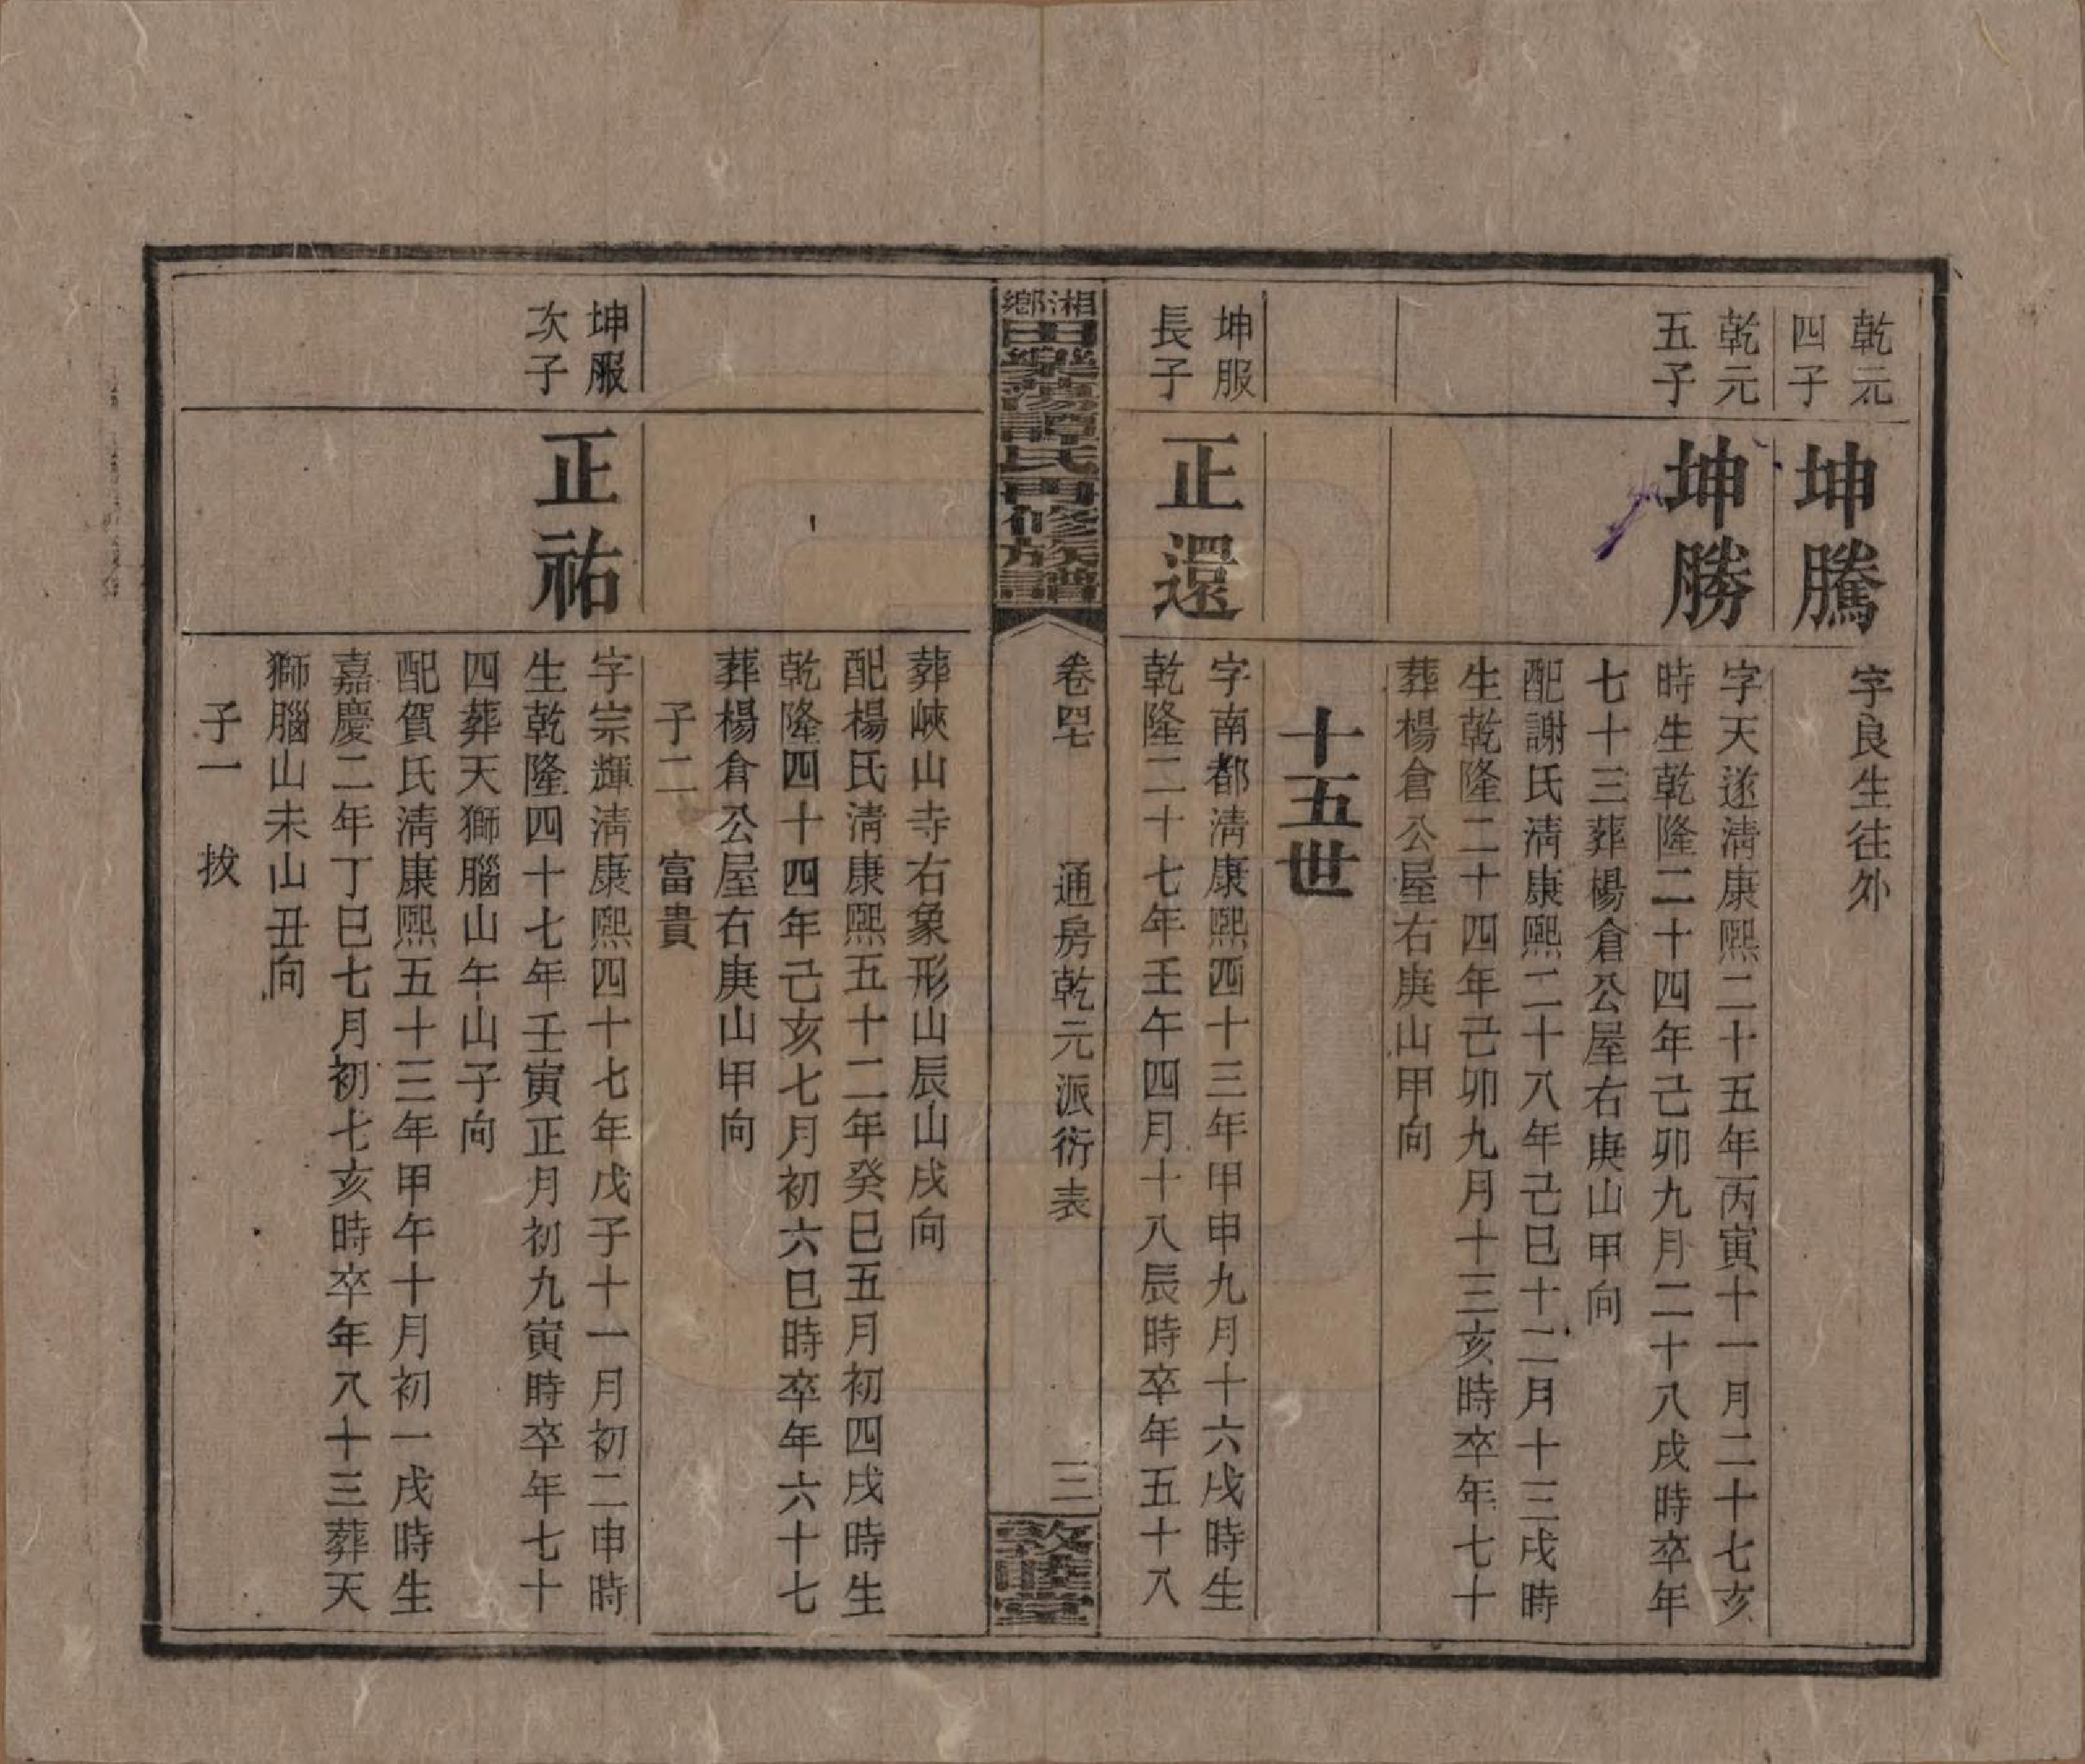 乾元
四子
坤騰
字良生往外
乾元
五子
坤勝
字天遂淸康熙二十五年丙寅十一月二十七亥
時生乾隆二十四年己卯九月二十八戌時卒年
七十三葬楊倉公屋右庚山甲向
配謝氏淸康熙二十八年己巳十二月十三戌時
生乾隆二十四年己卯九月十三亥時卒年七十
葬楊倉公屋右庚山甲向
十五世
坤服
長子
正還
字南都淸康熙四十三年甲申九月十六戌時生
乾隆二十七年壬午四月十八辰時卒年五十八
湘鄉
田樂蕩譚氏再修族譜
卷四七
通房乾元派衍表
三
敦睦堂
葬峽山寺右象形山辰山戌向
配楊氏淸康熙五十二年癸巳五月初四戌時生
乾隆四十四年己亥七月初六巳時卒年六十七
葬楊倉公屋右庚山甲向
子二 富貴
坤服
次子
正祐
字宗輝淸康熙四十七年戊子十一月初二申時
生乾隆四十七年壬寅正月初九寅時卒年七十
四葬天獅腦山午山子向
配賀氏淸康熙五十三年甲午十月初一戌時生
嘉慶二年丁巳七月初七亥時卒年八十三葬天
獅腦山未山丑向
子一 拔